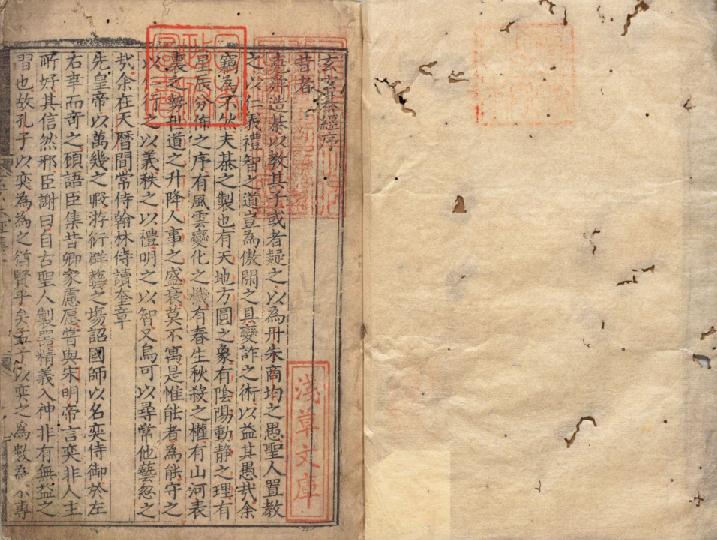 玄玄棊經序
昔者
堯舜造棊以教其子或者疑之以為丹朱商均之愚聖人置教
之以仁義禮智之道豈為傲閒之具變詐之術以益其愚哉余
竊為不然夫棊之製也有天地方圓之象有陰陽動靜之理有
星辰分佈之序有風雲變化之機有春生秋殺之權有山河表
裏之勢世道之升降人事之盛衰莫不寓是惟能者為能守之
以仁行之以義秩之以禮明之以智又烏可以尋常他藝忽之
哉余在天曆間常侍翰林侍讀奎章
先皇帝以萬幾之暇游衍群藝之場詔國師以名奕侍御於左
右幸而奇之顧語臣集昔卿家慮愿嘗與宋明帝言奕非人主
所好其信然邪臣謝曰自古聖人製器精義入神非有無益之
習也故孔子以奕為為之猶賢乎矣孟子以奕之為數為小專
淺草文庫